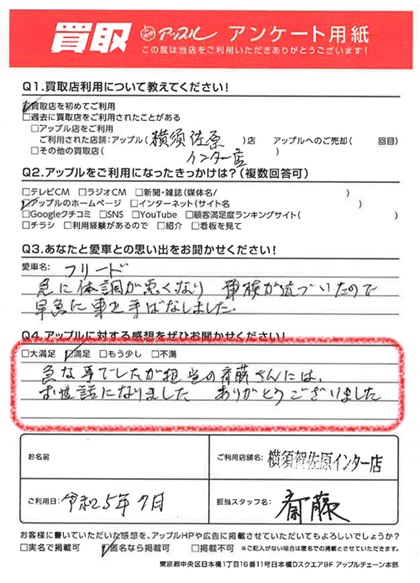 買取 アップル アンケート用紙
この度は当店をご利用いただきありがとうございます!
Q1.買取店利用について教えてください!
☑買取店を初めてご利用
□過去に買取店をご利用されたことがある
□アップル店をご利用
ご利用された店舗:アップル(横須佐原インター店)店 アップルへのご売却( 回目)
□その他の買取店( )
Q2.アップルをご利用になったきっかけは?(複数回答可)
□テレビCM □ラジオCM □新聞・雑誌(媒体名/ )
☑アップルのホームページ □インターネット(サイト名 )
□Googleクチコミ □SNS □YouTube □顧客満足度ランキングサイト( )
□チラシ □利用経験があるので □紹介 □看板を見て
Q3.あなたと愛車との思い出をお聞かせください!
愛車名: フリード
急に体調が悪くなり 車検が近づいたので
早急に車を手ばなしました.
Q4.アップルに対する感想をぜひお聞かせください!
□大満足 ☑満足 □もう少し □不満
急な事でしたが担当の斉藤さんには、
お世話になりました ありがとうございました
お名前
ご利用店舗名: 横須賀佐原インター店
ご利用日: 令和5年7月
担当スタッフ名: 斎藤
お客様に書いていただいた感想を、アップルHPや広告に掲載させていただいてもよろしいでしょうか?
□実名で掲載可 ☑匿名なら掲載可 □掲載不可 ※ご記入がない場合は匿名での掲載とさせていただきます。
東京都中央区日本橋1丁目16番11号日本橋Dスクエア8F アップルチェーン本部